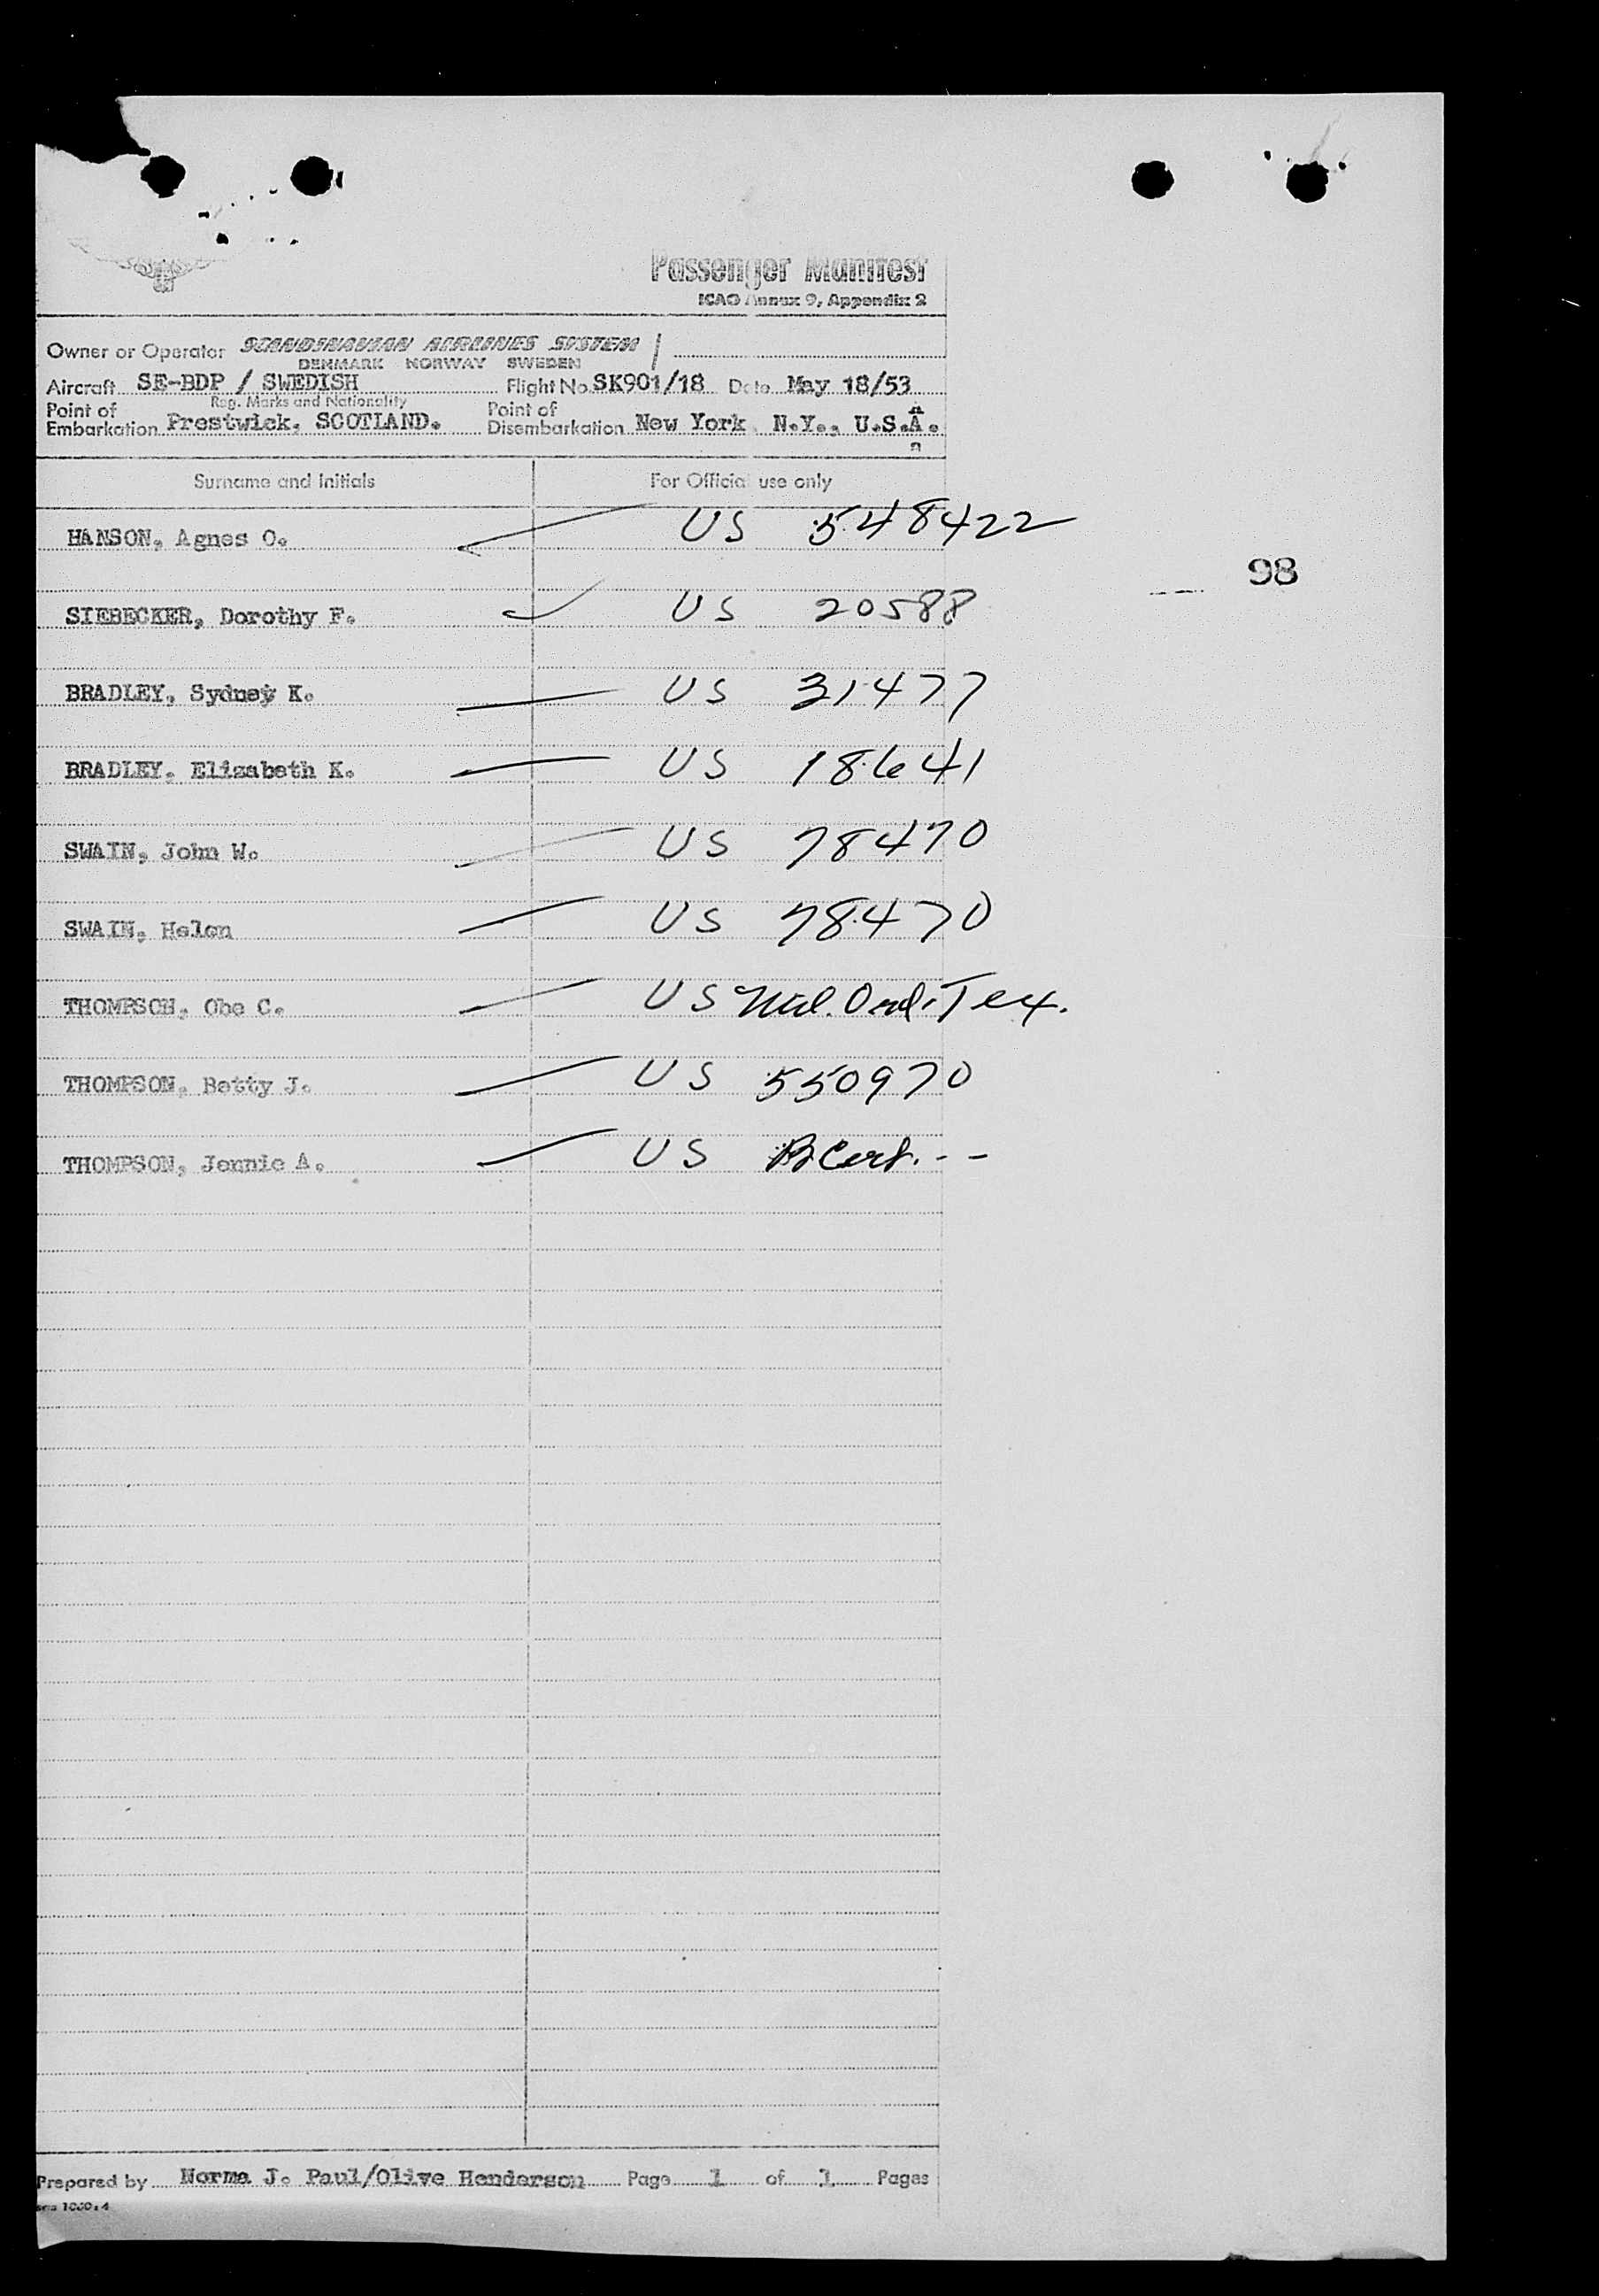 Passenger Manifest
ICAO Annex 9, Appendix 2
Owner or Operator SCANDINAVIAN AIRLINES SYSTEM
DENMARK NORWAY SWEDEN
Aircraft SE-BDP / SWEDISH Flight No. SK901/18 Date May 18/53
Reg. Marks and Nationality
Point of Embarkation Prestwick. SCOTLAND. Point of Disembarkation New York N.Y., U.S.A.
Surname and Initials For Official use only
HANSON, Agnes O. US 548422
98
SIEBECKER, Dorothy F. US 20588
BRADLEY, Sydney K. US 31477
BRADLEY. Elizabeth K. US 18641
SWAIN, John W. US 78470
SWAIN, Helen US 78470
THOMPSON, Obe C. US Mil. Ord. Tex.
THOMPSON, Betty J. US 550970
THOMPSON, Jennie A. US B Cert. - -
Prepared by Norma J. Paul/Olive Henderson Page 1 of 1 Pages